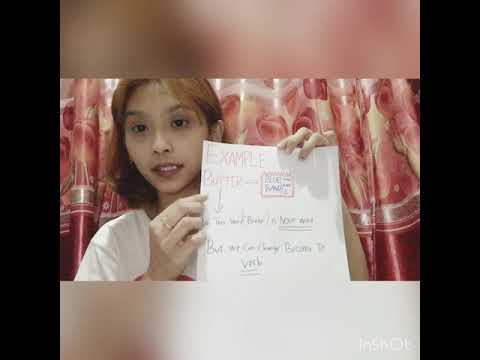 EXAMPLE
BUTTER → BLUE BAND
This Word Butter is Noun word
But we can change Become To
Verb
InShOt